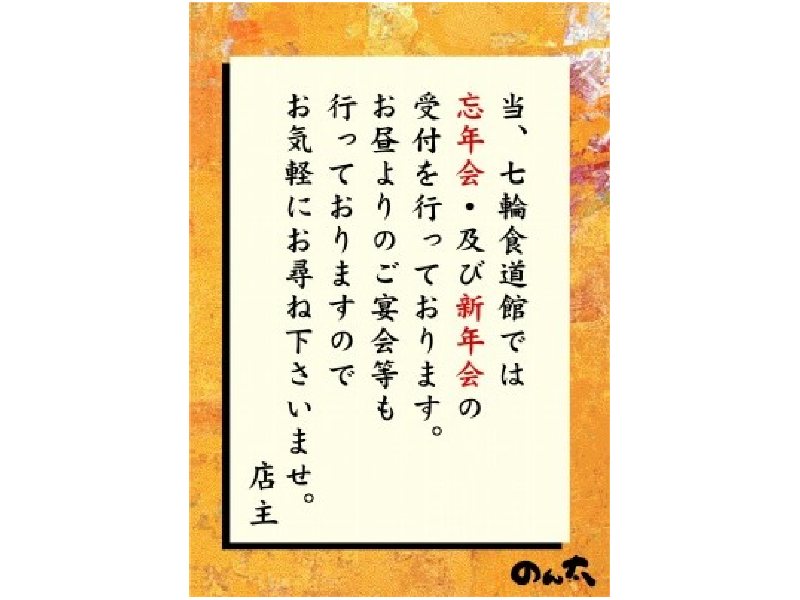 当、七輪食道館では
忘年会・及び新年会の
受付を行っております。
お昼よりのご宴会等も
行っておりますので
お気軽にお尋ね下さいませ。
店主
のん太